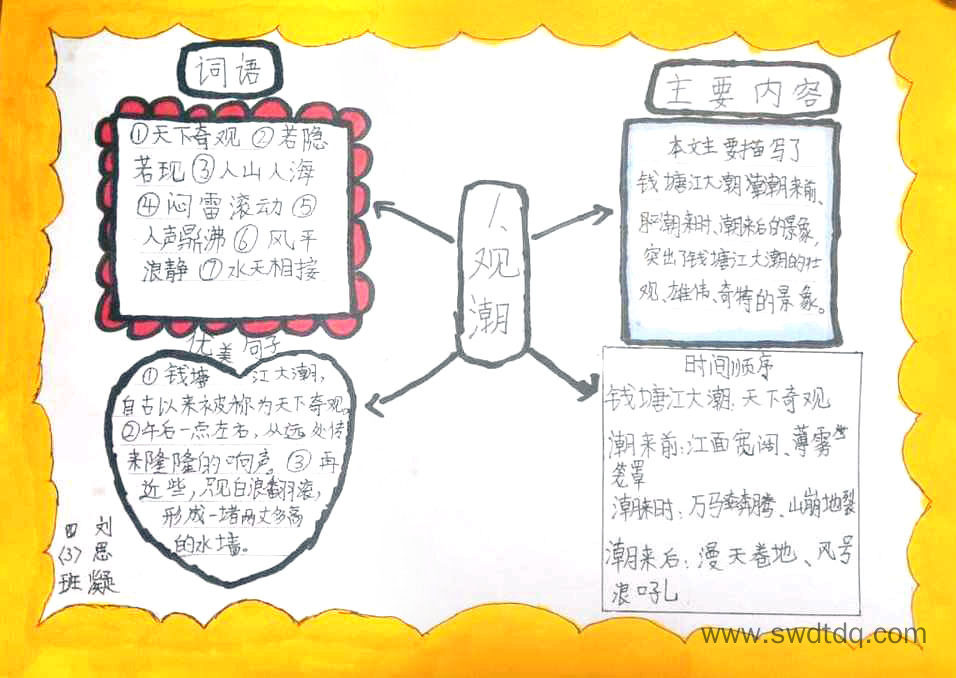 词语
①天下奇观 ②若隐
若现③人山人海
④闷雷滚动⑤
人声鼎沸⑥风平
浪静⑦水天相接
1、
观
潮
主要内容
本文主要描写了
钱塘江大潮潮来前、
潮来时、潮来后的景象,
突出了钱塘江大潮的壮
观、雄伟、奇特的景象。
优美句子
①钱塘 江大潮,
自古以来被称为天下奇观。
②午后一点左右,从远处传
来隆隆的响声。③再
近些,只见白浪翻滚,
形成一堵两丈多高
的水墙。
时间顺序
钱塘江大潮:天下奇观
潮来前:江面宽阔、薄雾
笼罩
潮来时:万马奔腾、山崩地裂
潮来后:漫天卷地、风号
浪吼
四(3)班
刘思凝
www.swdtdq.com